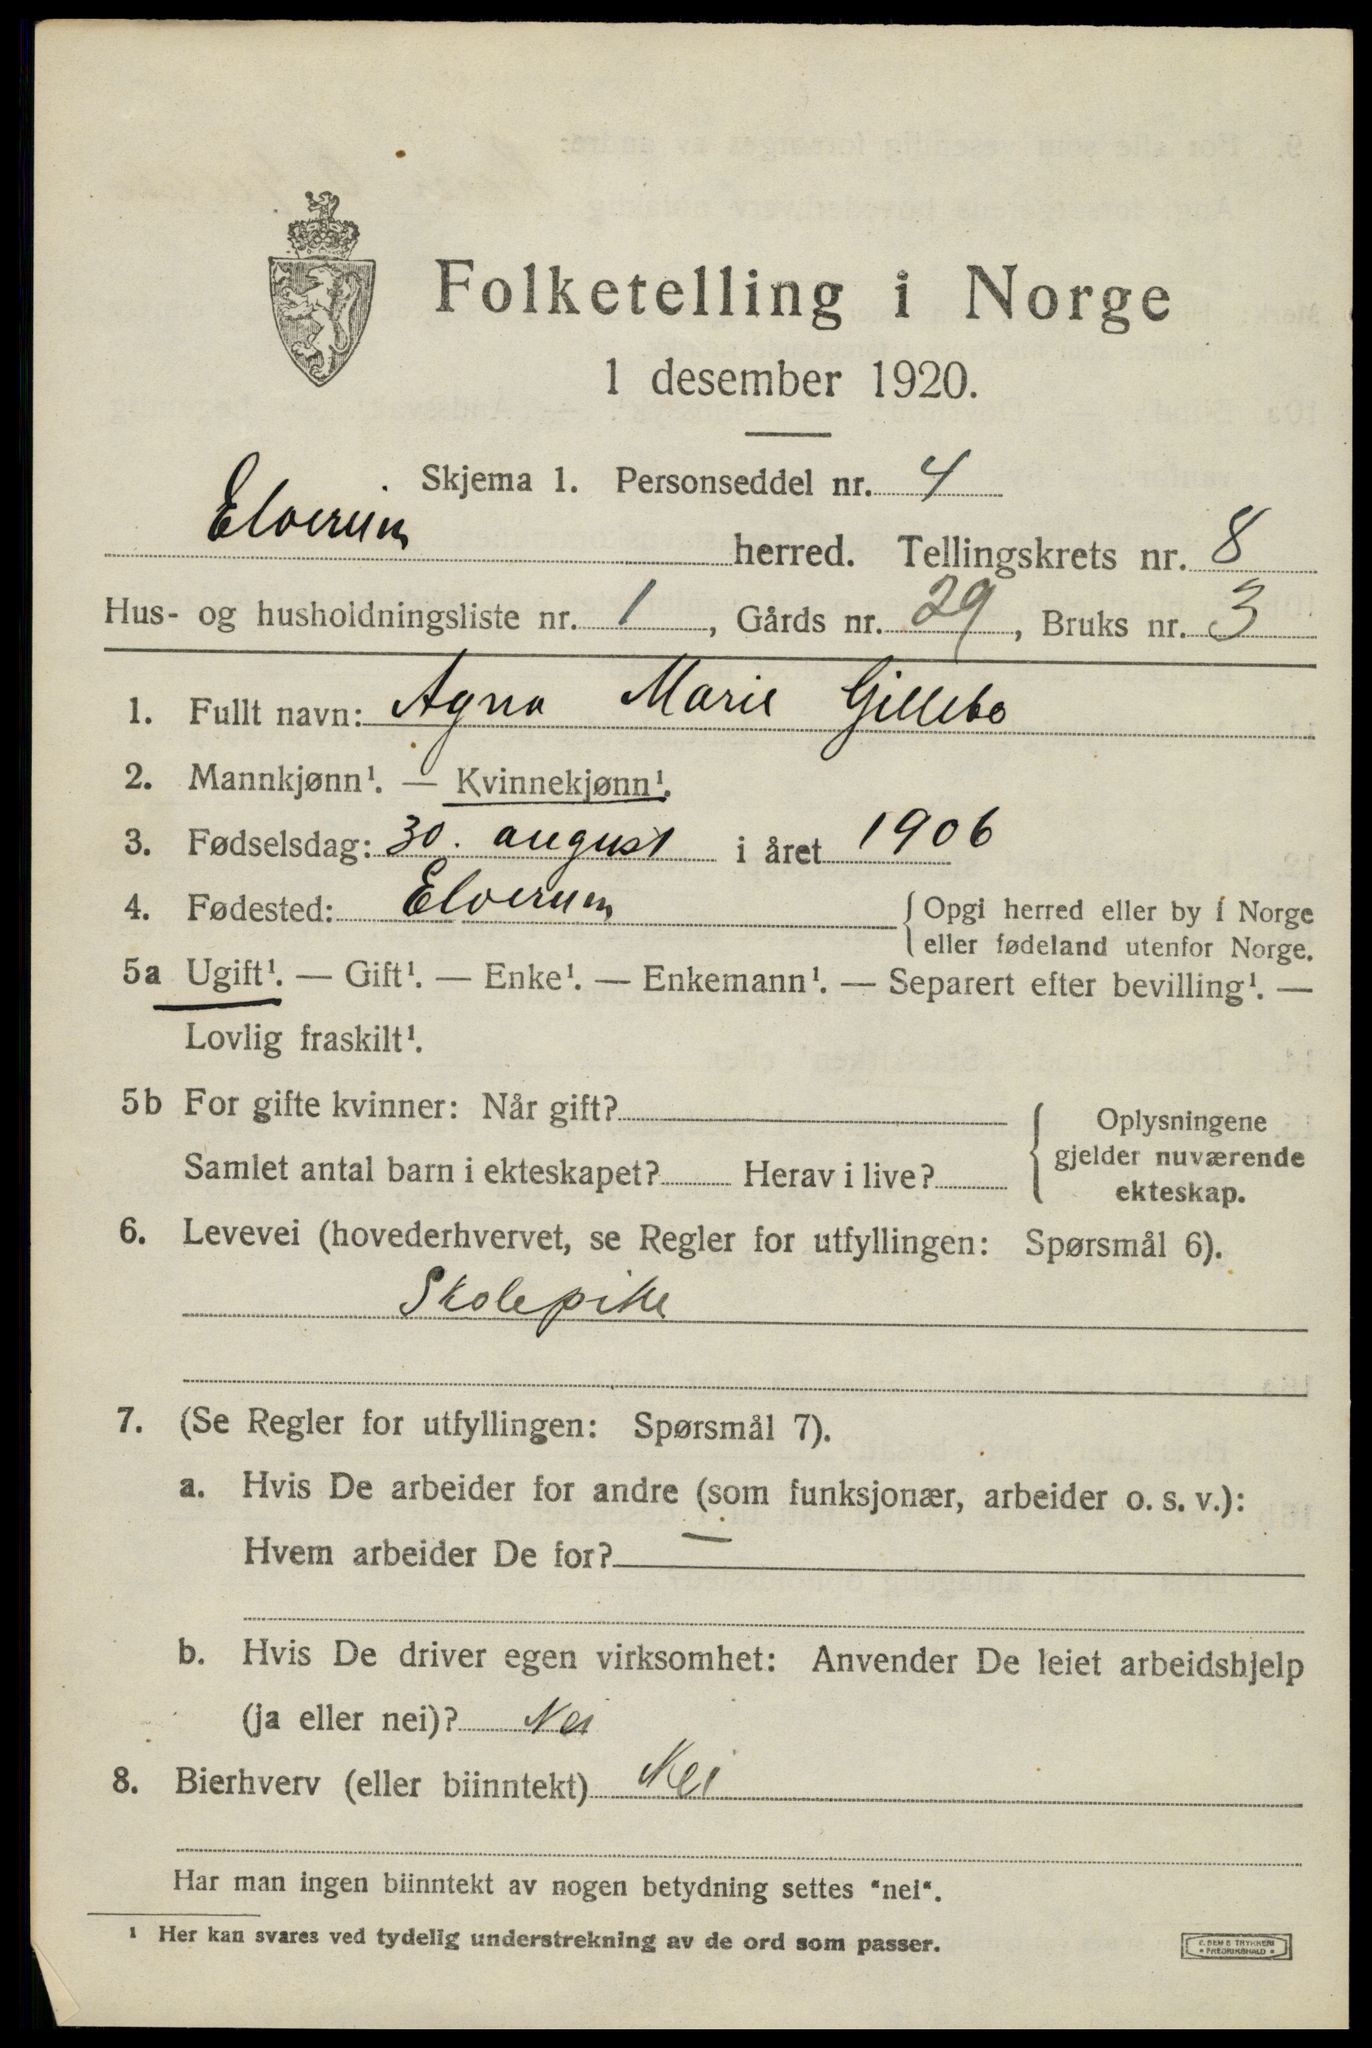 Folketelling i Norge
1 desember 1920.
Skjema 1. Personseddel nr. 4
Elverum herred. Tellingskrets nr. 8
Hus- og husholdningsliste nr. 1, Gårds nr. 29, Bruks nr. 3
1. Fullt navn: Agna Marie Gillebo
2. Mannkjønn¹. — Kvinnekjønn¹.
3. Fødselsdag: 30. august i året 1906
4. Fødested: Elverum {Opgi herred eller by i Norge
eller fødeland utenfor Norge.
5a Ugift¹. — Gift¹. — Enke¹. — Enkemann¹. — Separert efter bevilling¹. —
Lovlig fraskilt¹.
5b For gifte kvinner: Når gift?
Samlet antal barn i ekteskapet? Herav i live?
{Oplysningene
gjelder nuværende
ekteskap.
6. Levevei (hovederhvervet, se Regler for utfyllingen: Spørsmål 6).
Skolepike
7. (Se Regler for utfyllingen: Spørsmål 7).
a. Hvis De arbeider for andre (som funksjonær, arbeider o. s. v.):
Hvem arbeider De for? —
b. Hvis De driver egen virksomhet: Anvender De leiet arbeidshjelp
(ja eller nei)? Nei
8. Bierhverv (eller biinntekt) Nei
Har man ingen biinntekt av nogen betydning settes "nei".
¹ Her kan svares ved tydelig understrekning av de ord som passer.
TRYKKERI
FREDRIKSHALD